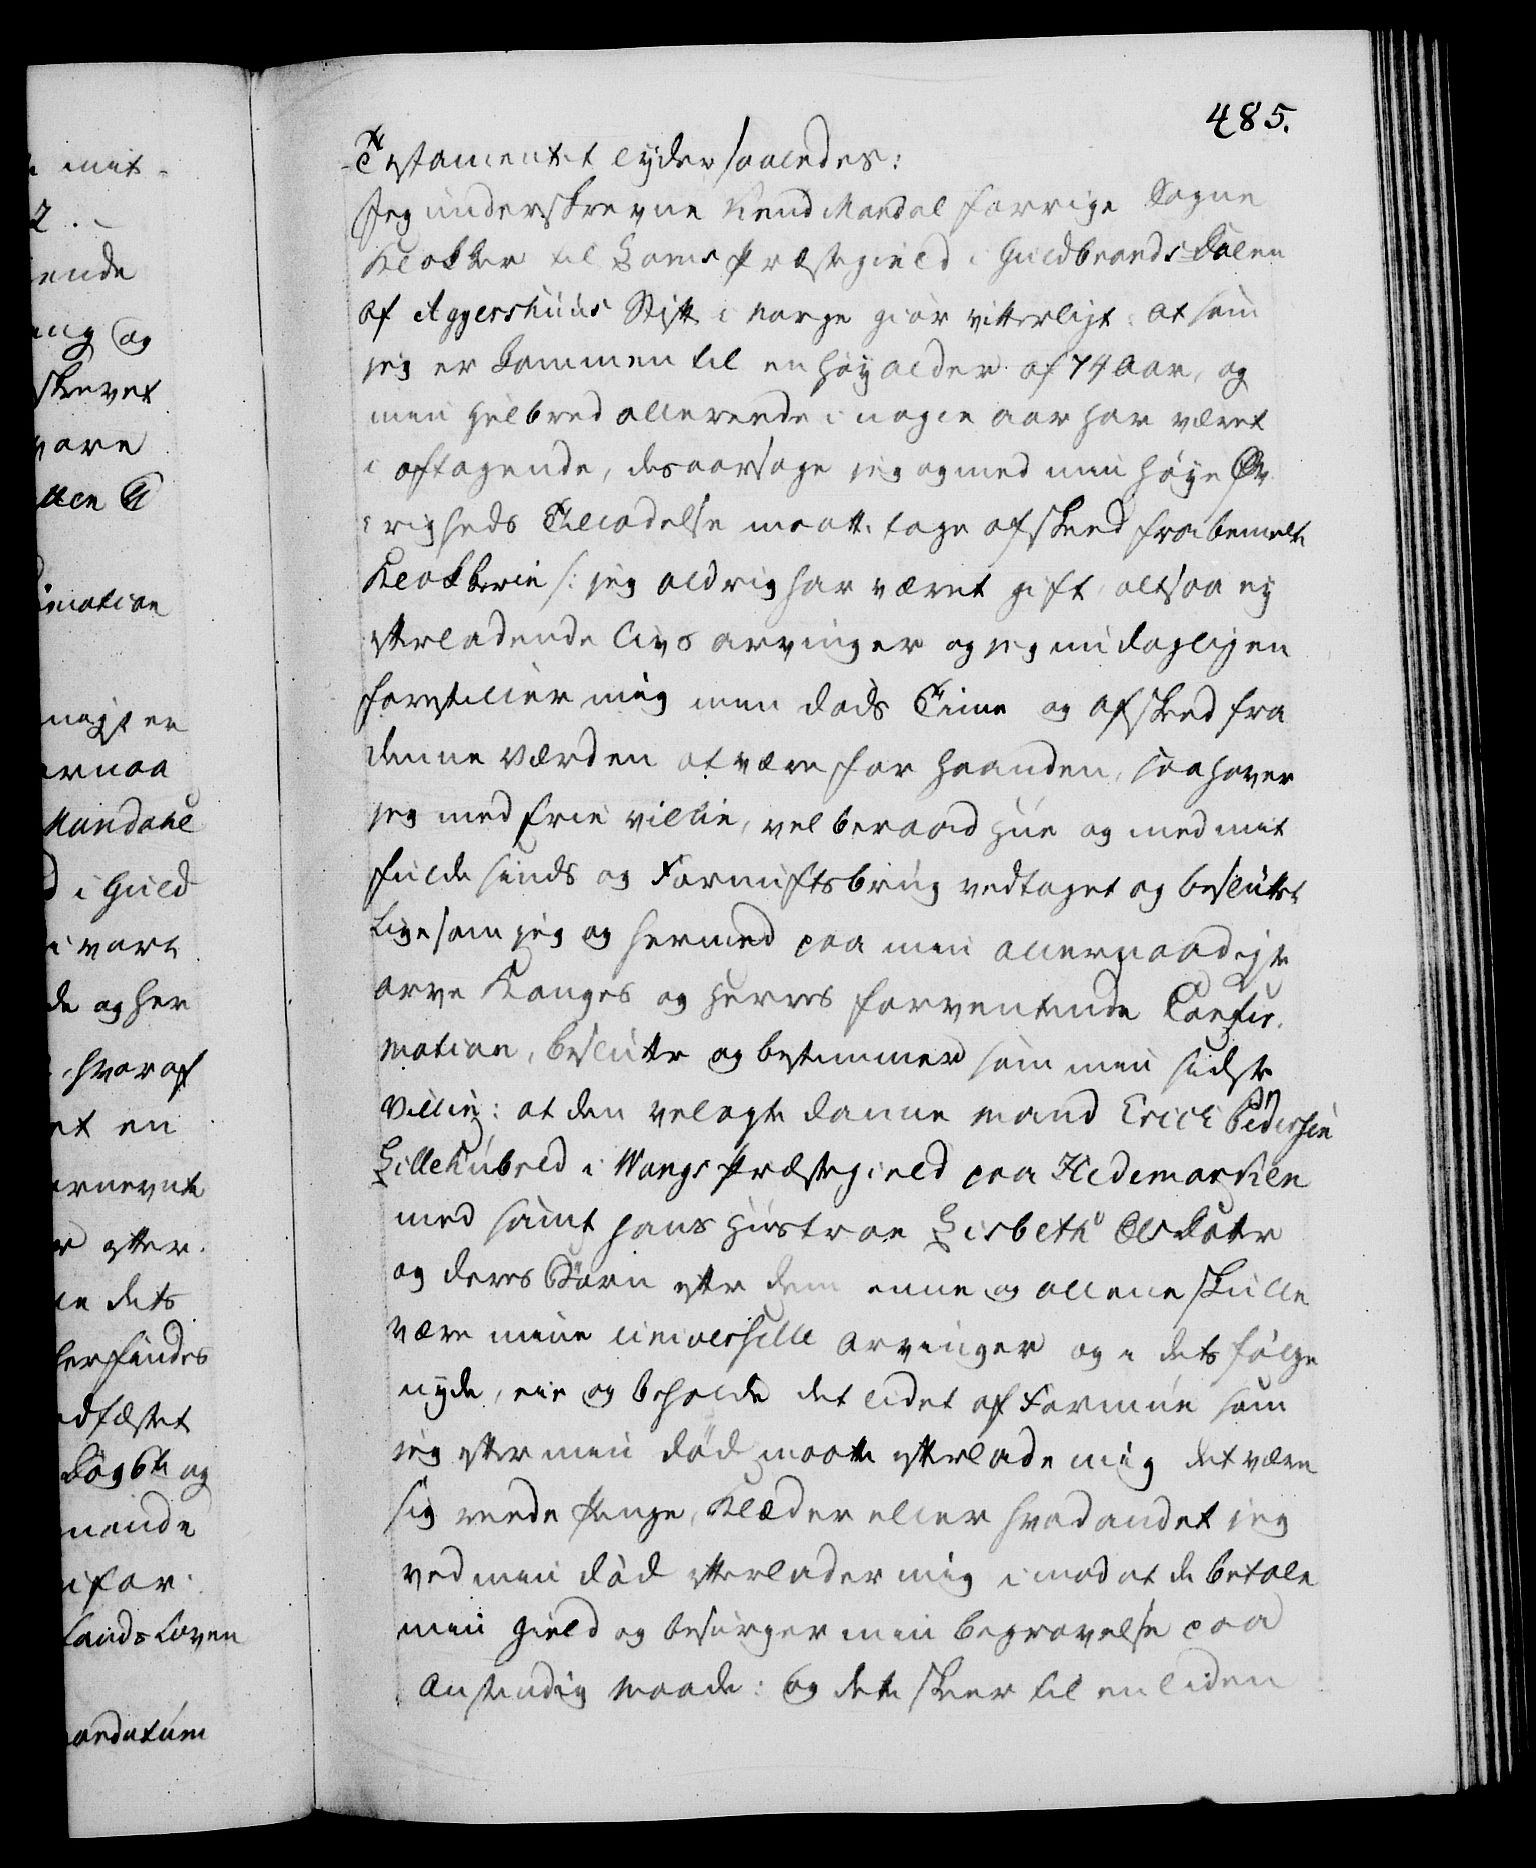 485.
Testamentet lyder saaledes:
Jeg underskrevne Knud Mandal forrige Sogne
Klokker til Loms Præstegield i Guldbrandsdalen
af Aggershuus Stift i Norge giør vitterligt: at som
jeg er kommen til en høy alder af 74 Aar, og
min Helbred allerede i nogle aar har været
i aftagende, desaarsage jeg og med min høye Øv-
righeds Tilladelse maatte tage afskeed fra bemelte
Klokkerie /: jeg aldrig har været gift, altsaa ey
efterladende Livs arvinger og jeg nu dagligen
forestiller mig min døds Time og afskeed fra
denne Værden at være for haanden, saa haver
jeg med frie villie, vel beraad Hue og med mit
fulde Sinds og Fornuftsbrug vedtaget og besluttet
Ligesom jeg og hermed paa min allernaadigste
arve Konges og Herres forventende Confir-
mation, beslutter og bestemmer som min sidste
Villie: at den velagte danne Mand Erich Pedersen
Lille Kubeld i Wangs Præstegield paa Hedemarken
med samt hans Hustroe Lisbeth Olsdatter
og deres Børn efter dem eene og allene skulle
være mine universelle arvinger og i dets følge
nyde, eie og beholde det lidet af Formue som
jeg efter min død maatte efterlade mig det være
sig reede Penge, Klæder eller hvad andet jeg
ved min død efterlader mig imod at de betale
min Gield og besørger min begravelse paa
Anstændig Maade: og dette skeer til en liden
mit
2.
ende
og
skrevet
vare
imation
Mandahl
i Guld
i vort
de og her
hvoraf
et en
efter
dets
findes
dfæstet
og
for
Lands Loven